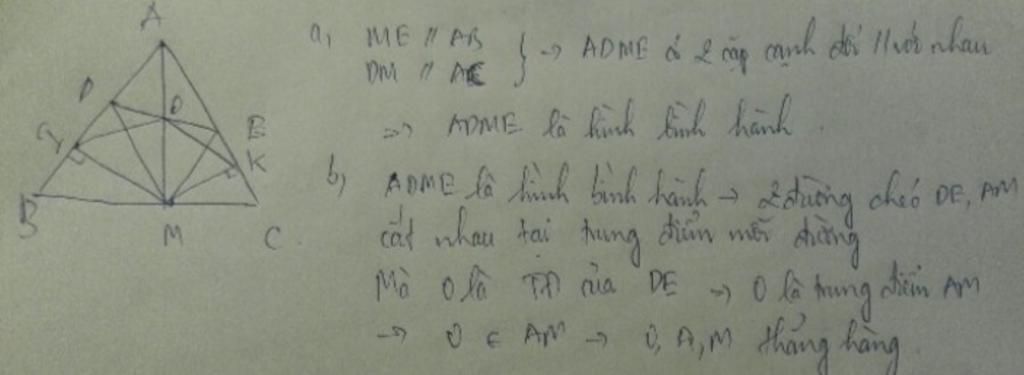 A
D
O
E
G
K
B
M
C
a, ME // AB
DM // AE } → ADME có 2 cặp cạnh đối // với nhau
=> ADME là hình bình hành.
b, ADME là hình bình hành → 2 đường chéo DE, AM
cắt nhau tại trung điểm mỗi đường
Mà O là TĐ của DE → O là trung điểm AM
→ O ∈ AM → O, A, M thẳng hàng.